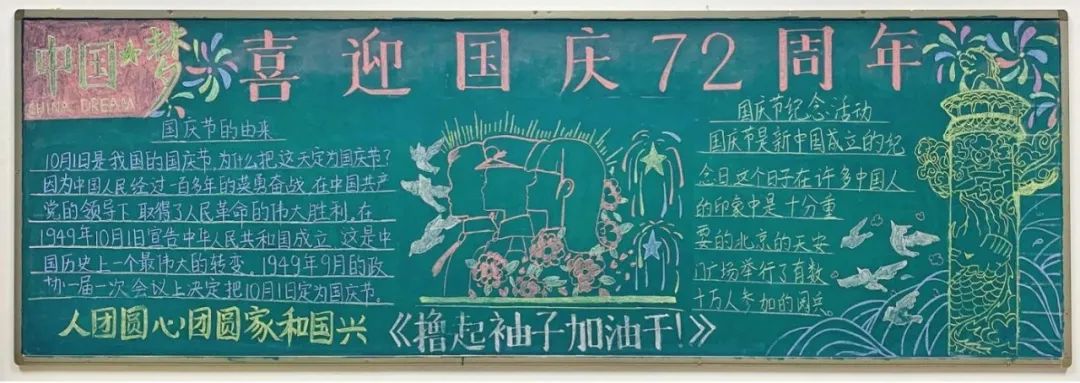 中国梦
CHINA DREAM
喜迎国庆72周年
国庆节的由来
10月1日是我国的国庆节,为什么把这天定为国庆节?
因为中国人民经过一百多年的英勇奋战,在中国共产
党的领导下,取得了人民革命的伟大胜利。在
1949年10月1日宣告中华人民共和国成立,这是中
国历史上一个最伟大的转变。1949年9月的政
协一届一次会议上决定把10月1日定为国庆节。
人团圆心团圆家和国兴
《撸起袖子加油干!》
国庆节纪念活动
国庆节是新中国成立的纪
念日这个日子在许多中国人
的印象中是十分重
要的北京的天安
门广场举行了有数
十万人参加的阅兵。